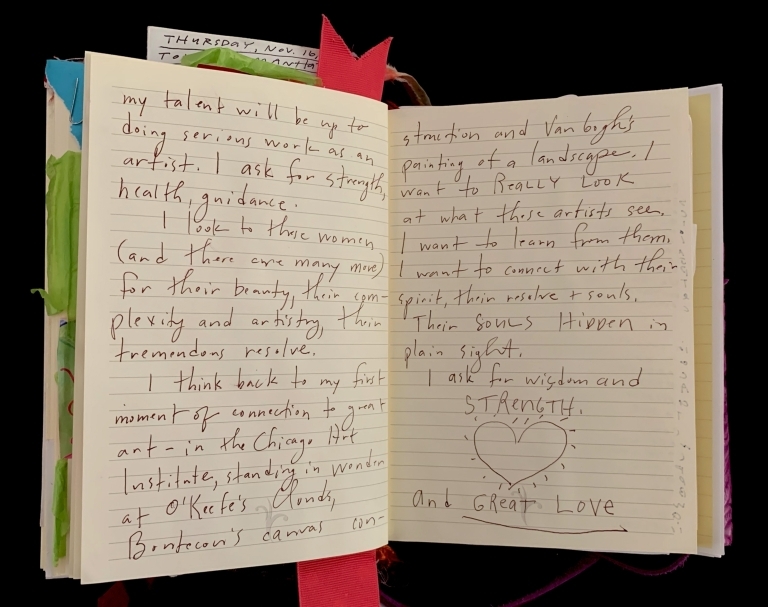 THURSDAY, NOV. 16,
my talent will be up to
doing serious work as an
artist. I ask for strength,
health, guidance.
I look to these women
(and there are many more)
for their beauty, their com-
plexity and artistry, their
tremendous resolve.
I think back to my first
moment of connection to great
art - in the Chicago Art
Institute, standing in wonder
at O'Keefe's Clouds,
Bontecou's canvas con-
struction and Van Gogh's
painting of a landscape. I
want to REALLY LOOK
at what these artists see.
I want to learn from them.
I want to connect with their
spirit, their resolve + souls.
Their SOULS HIDDEN in
plain sight.
I ask for wisdom and
STRENGTH.
and GREAT LOVE